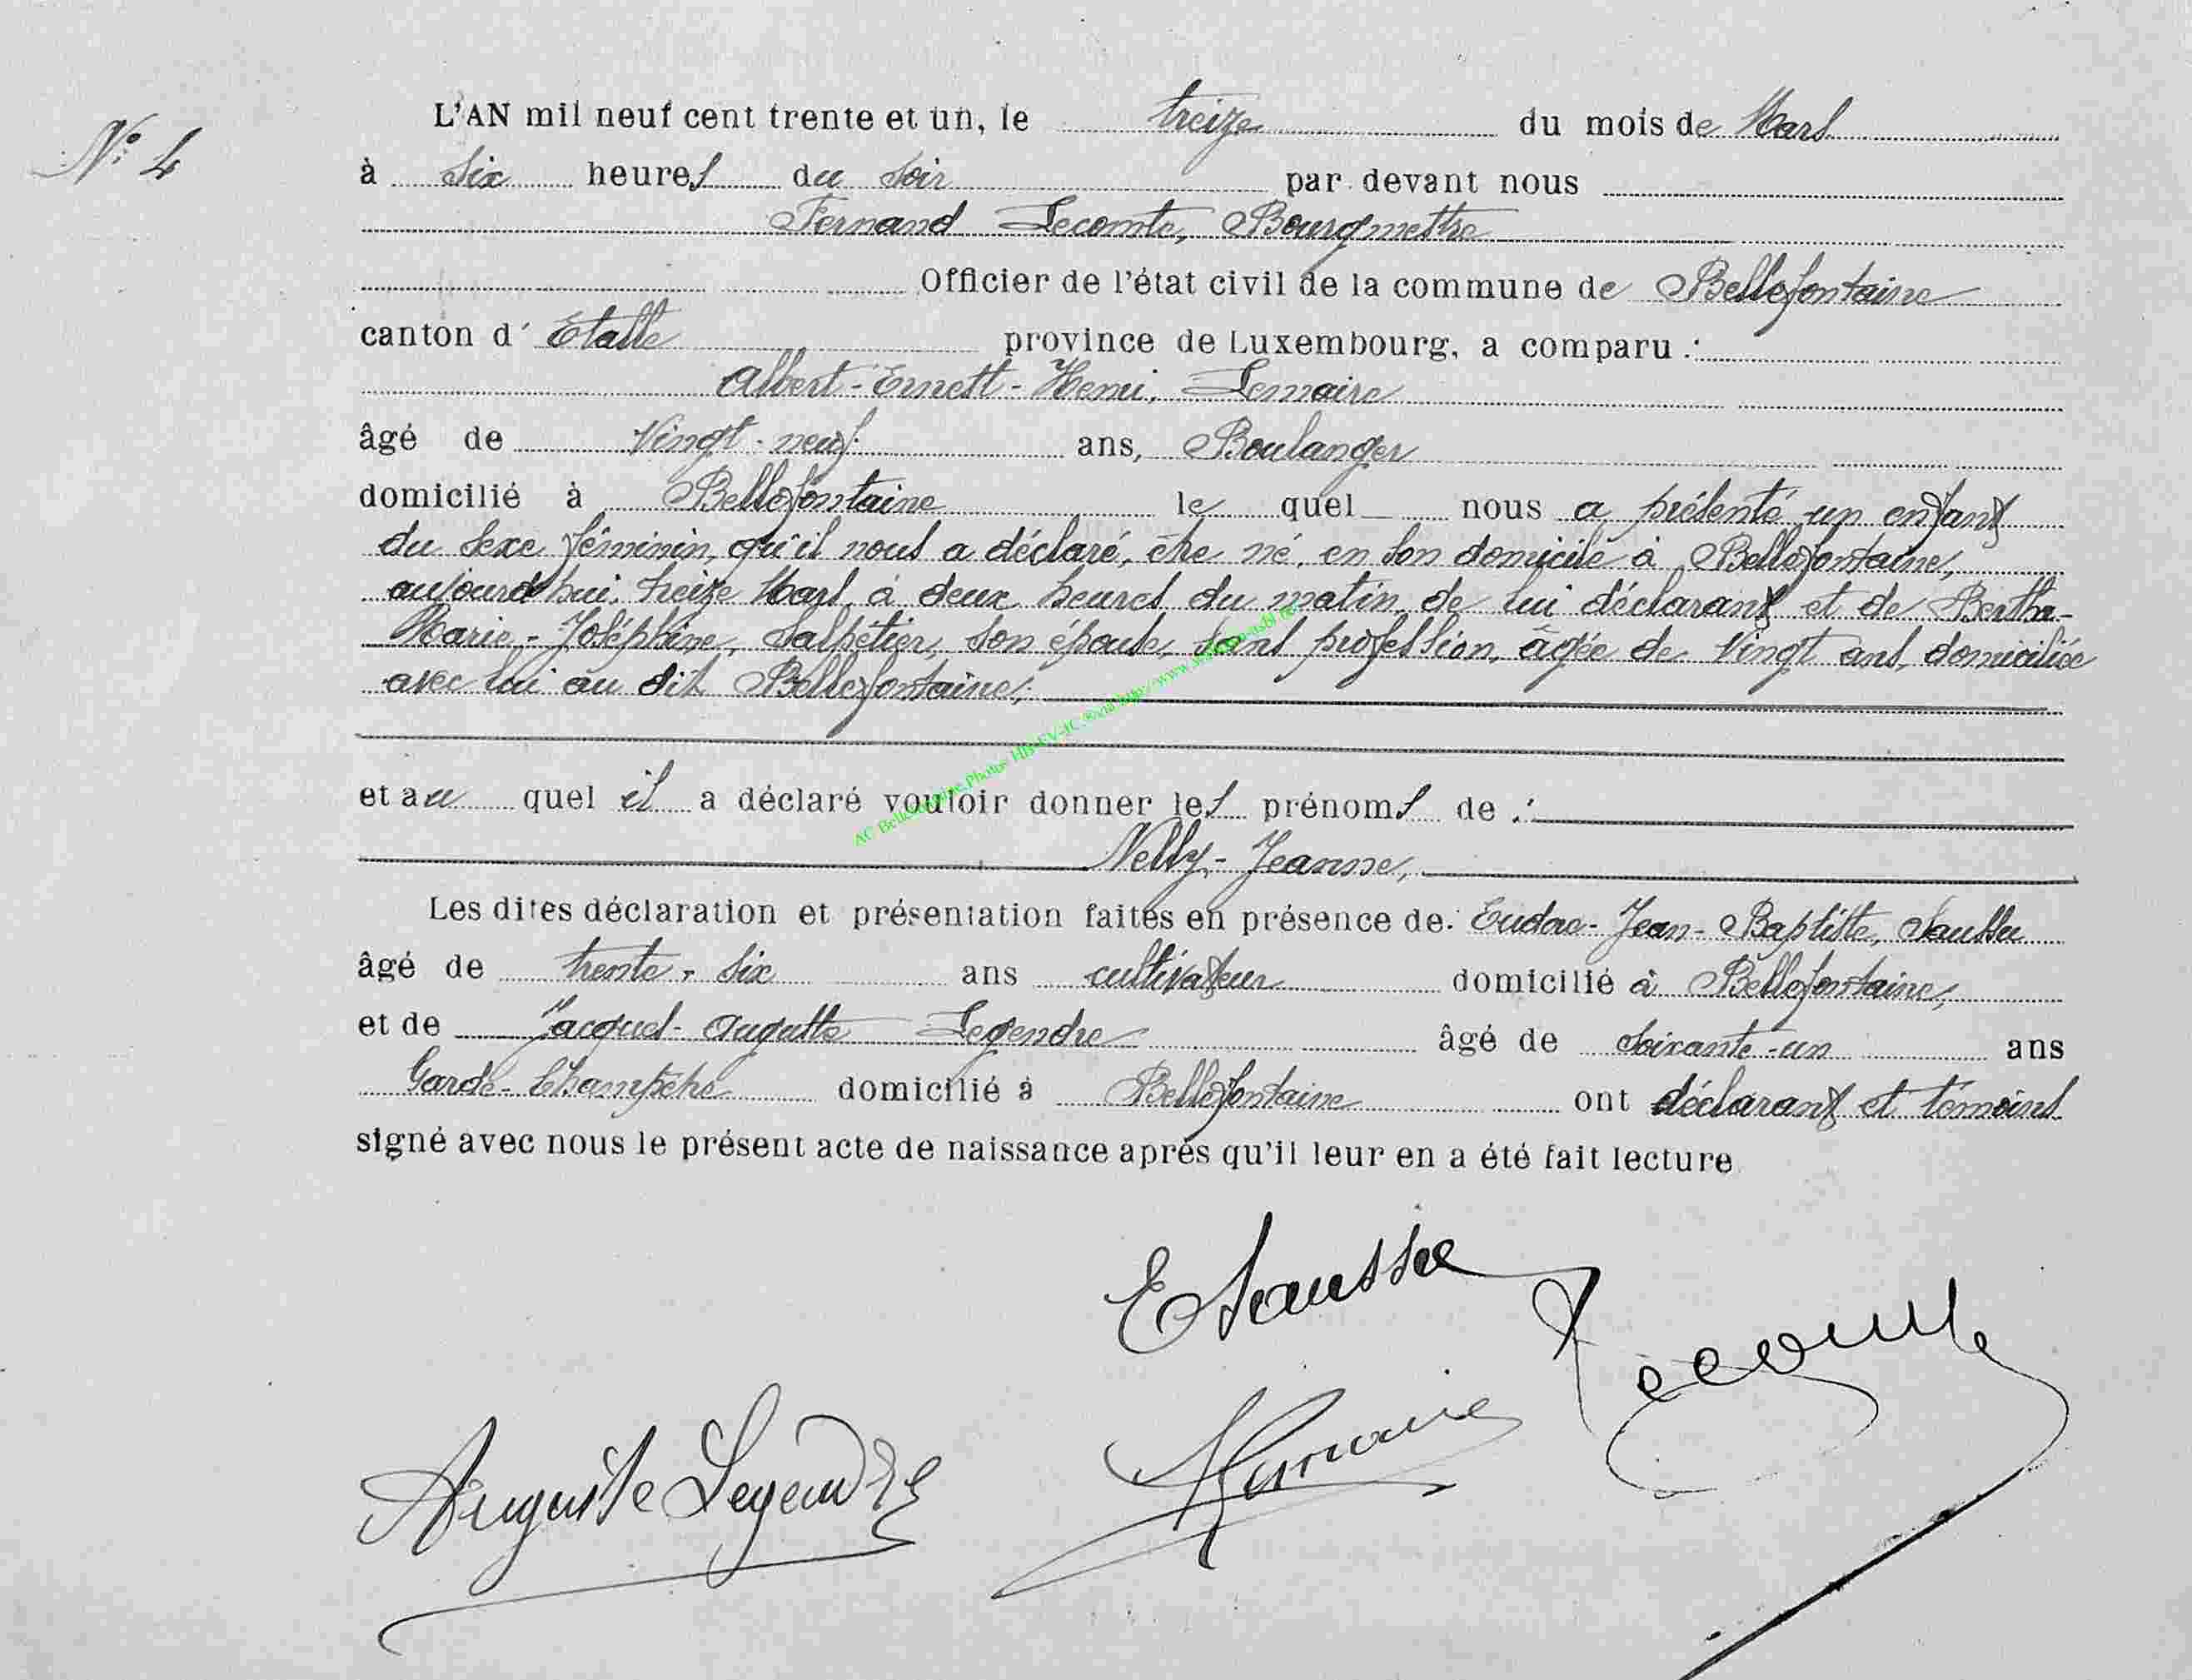 N° 4
L'AN mil neuf cent trente et un, le treize du mois de Mars
à six heures du soir par devant nous
Fernand Lecomte, Bourgmestre
Officier de l'état civil de la commune de Bellefontaine
canton d' Etalle province de Luxembourg, a comparu :
Albert-Ernest-Henri, Lemaire
âgé de Vingt-neuf ans, Boulanger
domicilié à Bellefontaine le quel nous a présenté un enfant
du sexe féminin, qu'il nous a déclaré, être né, en son domicile à Bellefontaine,
aujourd'hui, treize Mars à deux heures du matin, de lui déclarant et de Bertha-
Marie-Joséphine, Salpétier, son épouse, sans profession, âgée de Vingt ans, domiciliée
avec lui au dit Bellefontaine;
et au quel il a déclaré vouloir donner les prénoms de :
Nelly-Jeanne,
Les dites déclaration et présentation faites en présence de Eudore-Jean-Baptiste, Saussu
âgé de trente-six ans cultivateur domicilié à Bellefontaine,
et de Jacques-Auguste Legendre âgé de soixante-un ans
Garde-Champêtre domicilié à Bellefontaine ont déclarant et témoins
signé avec nous le présent acte de naissance après qu'il leur en a été fait lecture
E Saussu
Lecomte
Auguste Legendre
Lemaire